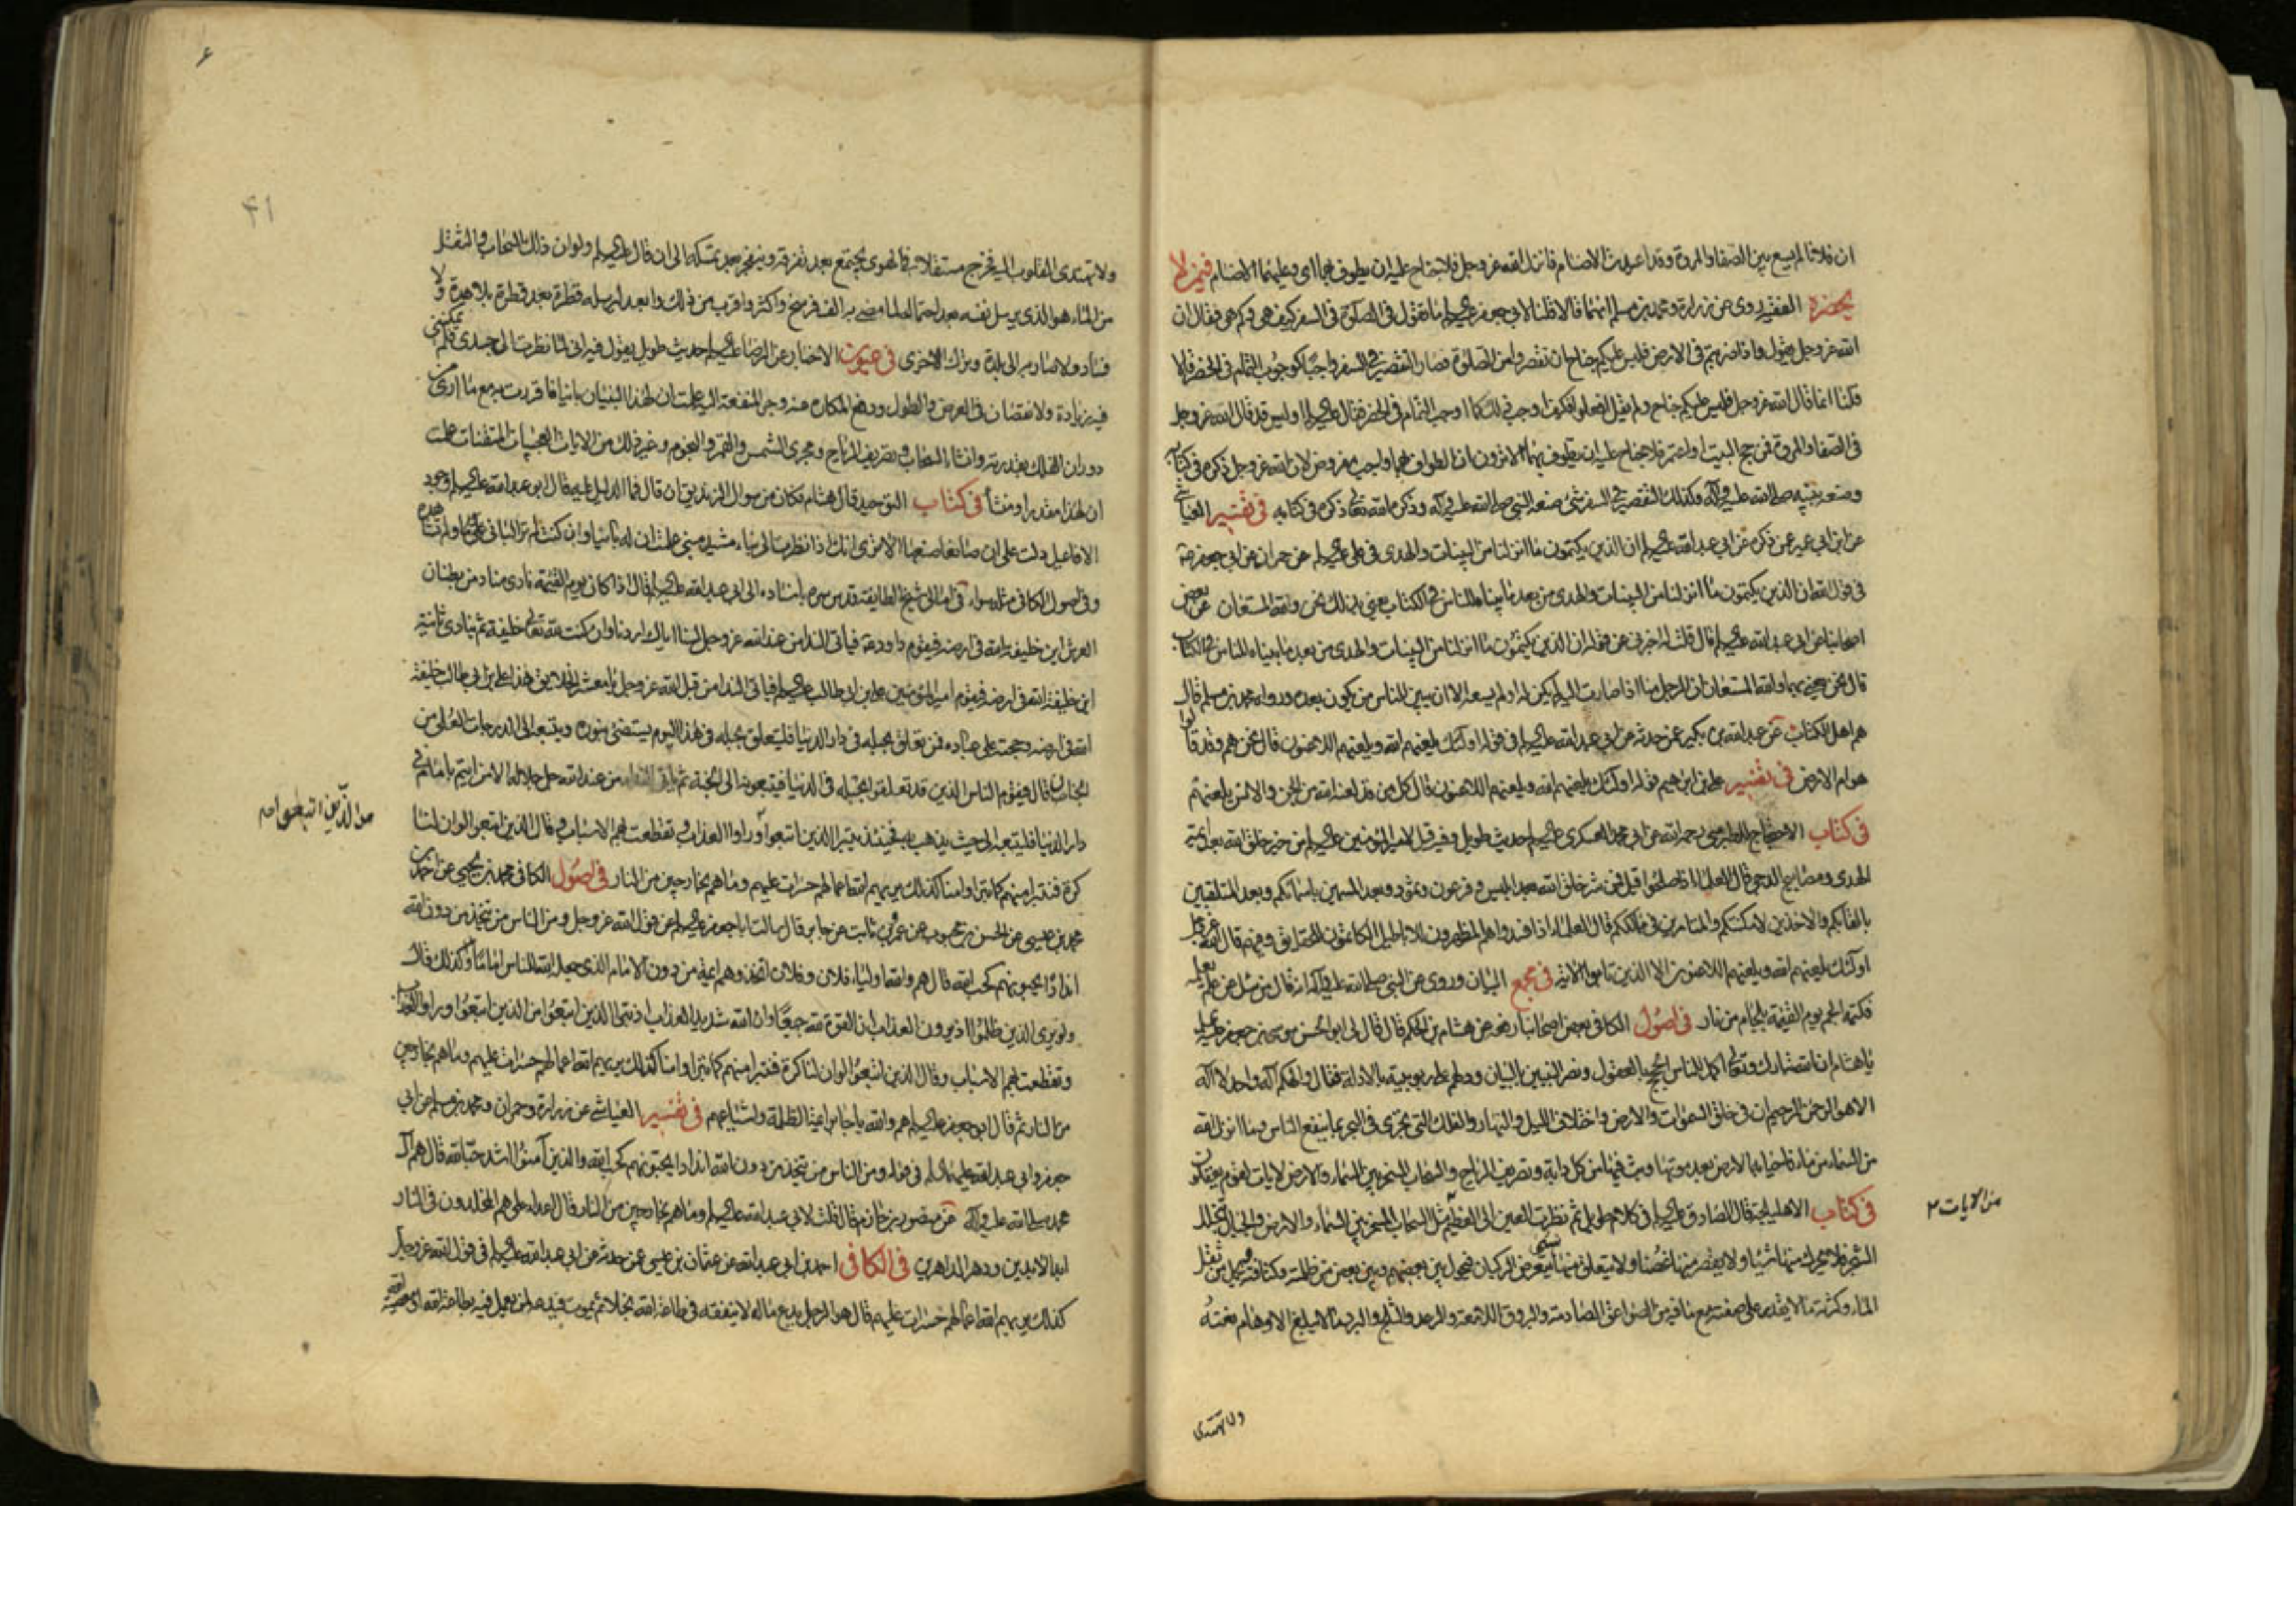 ان فلانا لم يسع بين الصفا والمروة وقد اعيدت الاصنام فانزل الله عز وجل فلا جناح عليه ان يطوف بهما اى وعليهما الاصنام فيمن لا
يحضره الفقيه روى عن زرارة ومحمد بن مسلم انهما قالا قلنا لابى جعفر عليه السلم ما تقول فى الصلوة فى السفر كيف هى وكم هى فقال ان
الله عز وجل يقول واذا ضربتم فى الارض فليس عليكم جناح ان تقصروا من الصلوة فصار التقصير فى السفر واجبا كوجوب التمام فى الحضر قالا
قلنا انما قال الله عز وجل فليس عليكم جناح ولم يقل افعلوا فكيف اوجب ذلك كما اوجب التمام فى الحضر فقال عليه السلم او ليس قد قال الله عز وجل
فى الصفا والمروة فمن حج البيت او اعتمر فلا جناح عليه ان يطوف بهما الا ترون ان الطواف بهما واجب مفروض لان الله عز وجل ذكره فى كتابه
وصنعه نبيه صلى الله عليه وآله وكذلك التقصير فى السفر شئ صنعه النبى صلى الله عليه وآله وذكره الله تعالى ذكره فى كتابه فى تفسير العياشى
عن ابن ابى عمير عمن ذكره عن ابى عبد الله عليه السلم ان الذين يكتمون ما انزلنا من البينات والهدى فى على عليه السلم عن حمران عن ابى جعفر
فى قول الله ان الذين يكتمون ما انزلنا من البينات والهدى من بعد ما بيناه للناس فى الكتاب يعنى بذلك نحن والله المستعان عن بعض
اصحابنا عن ابى عبد الله عليه السلم قال قلت له اخبرنى عن قوله ان الذين يكتمون ما انزلنا من البينات والهدى من بعد ما بيناه للناس فى الكتاب
قال نحن يعنى بها والله المستعان ان الرجل منا اذا صارت اليه لم يكن له او لم يسعه الا ان يبين للناس من يكون بعده ورواه محمد بن مسلم قال
هم اهل الكتاب عن عبد الله بن بكير عمن حدثه عن ابى عبد الله عليه السلم فى قوله اولئك يلعنهم الله ويلعنهم اللاعنون قال نحن هم وقد قالوا
هوام الارض فى تفسير على بن ابراهيم قوله اولئك يلعنهم الله ويلعنهم اللاعنون قال كل من قد لعنه الله من الجن والانس يلعنهم
فى كتاب الاحتجاج للطبرسى رحمه الله عن ابى محمد العسكرى عليه السلم حديث طويل وفيه قيل لامير المؤمنين عليه السلم من خير خلق الله بعد ائمة
الهدى ومصابيح الدجى قال العلماء اذا صلحوا قيل فمن شر خلق الله بعد ابليس وفرعون وثمود وبعد المتسمين باسمائكم وبعد المتلقبين
بالقابكم والآخذين لامكنتكم والمتامرين فى ممالككم قال العلماء اذا فسدوا هم المظهرون للاباطيل الكاتمون للحقايق وفيهم قال الله عز وجل
اولئك يلعنهم الله ويلعنهم اللاعنون الا الذين تابوا الآية فى مجمع البيان وروى عن النبى صلى الله عليه وآله انه قال من سئل عن علم يعلمه
فكتمه الجم يوم القيمة بلجام من نار فى اصول الكافى بعض اصحابنا رفعه عن هشام بن الحكم قال قال لى ابو الحسن موسى بن جعفر عليه السلم
يا هشام ان الله تبارك وتعالى اكمل للناس الحجج بالعقول ونصر النبيين بالبيان ودلهم على ربوبيته بالادلة فقال والهكم اله واحد لا اله
الا هو الرحمن الرحيم ان فى خلق السموات والارض واختلاف الليل والنهار والفلك التى تجرى فى البحر بما ينفع الناس وما انزل الله
من السماء من ماء فاحيا به الارض بعد موتها وبث فيها من كل دابة وتصريف الرياح والسحاب المسخر بين السماء والارض لايات لقوم يعقلون
من الآيات
فى كتاب الاهليلجة قال الصادق عليه السلم فى كلام طويل ثم نظرت العين الى العظيم مثل السحاب المسخر بين السماء والارض والجبال يتخلل
الشجر فلا يحرك منها شيئا ولا يقصر منها غصنا ولا يتعلق منها بشئ يتعرض الركبان فيحول بين بعضهم وبين بعض من ظلمته وكثافته ويحمل من ثقل
الماء وكثرته ما لا يقدر على صفته مع ما فيه من الصواعق الصادعة والبروق اللامعة والرعد والثلج والبرد ما لا يبلغ الاوهام نعته
ولا تهتدى
۴۱
ولا تهتدى القلوب اليه فخرج مستقلا فى الهوى يجتمع بعد تفرقه وينفجر بعد تمسكه الى ان قال عليه السلم ولو ان ذلك السحاب والثقل
من الماء هو الذى يرسل نفسه بعد احتماله لما مضى به الف فرسخ واكثر واقرب من ذلك وابعد ليرسله قطرة بعد قطرة بلا هدة ولا
فساد ولا صار به الى بلدة وترك الاخرى فى عيون الاخبار عن الرضا عليه السلم حديث طويل يقول فيه انى لما نظرت الى جسدى فلم يمكننى
فيه زيادة ولا نقصان فى العرض والطول ودفع المكاره عنه وجر المنفعة اليه علمت ان لهذا البنيان بانيا فاقررت به مع ما ارى من
دوران الفلك بقدرته وانشاء السحاب وتصريف الرياح ومجرى الشمس والقمر والنجوم وغير ذلك من الآيات العجيبات المتقنات علمت
ان لهذا مقدرا ومنشأ فى كتاب التوحيد قال هشام فكان من سؤال الزنديق ان قال فما الدليل عليه قال ابو عبد الله عليه السلم وجود
الافاعيل دلت على ان صانعا صنعها الا ترى انك اذا نظرت الى بناء مشيد مبنى علمت ان له بانيا وان كنت لم تر البانى ولم تشاهده
وفى اصول الكافى مثله سواء فى امالى شيخ الطايفة قدس سره باسناده الى ابى عبد الله عليه السلم قال اذا كان يوم القيمة نادى مناد من بطنان
العرش اين خليفة الله فى ارضه فيقوم داود فياتى النداء من عند الله عز وجل لسنا اياك اردنا وان كنت لله تعالى خليفة ثم ينادى ثانية
اين خليفة الله فى ارضه فيقوم امير المؤمنين على بن ابى طالب عليه السلم فياتى النداء من قبل الله عز وجل يا معشر الخلايق هذا على بن ابى طالب خليفة
الله فى ارضه وحجته على عباده فمن تعلق بحبله فى دار الدنيا فليتعلق بحبله فى هذا اليوم يستضئ بنوره ويتبعه الى الدرجات العلى من
الجنات قال فيقوم الناس الذين قد تعلقوا بحبله فى الدنيا فيتبعونه الى الجنة ثم ياتى النداء من عند الله جل جلاله الا من ائتم بامام فى
دار الدنيا فليتبعه الى حيث يذهب به فحينئذ يتبرا الذين اتبعوا وراوا العذاب وتقطعت بهم الاسباب وقال الذين اتبعوا لو ان لنا
من الذين اتبعوا
كرة فنتبرا منهم كما تبراوا منا كذلك يريهم الله اعمالهم حسرات عليهم وما هم بخارجين من النار فى اصول الكافى محمد بن يحيى عن احمد بن
محمد بن عيسى عن الحسن بن محبوب عن عمرو بن ثابت عن جابر قال سالت ابا جعفر عليه السلم عن قول الله عز وجل ومن الناس من يتخذ من دون الله
اندادا يحبونهم كحب الله قال هم والله اولياء فلان وفلان اتخذوهم ائمة من دون الامام الذى جعله الله للناس اماما وكذلك قال
ولو يرى الذين ظلموا اذ يرون العذاب ان القوة لله جميعا وان الله شديد العذاب اذ تبرا الذين اتبعوا من الذين اتبعوا وراوا العذاب
وتقطعت بهم الاسباب وقال الذين اتبعوا لو ان لنا كرة فنتبرا منهم كما تبراوا منا كذلك يريهم الله اعمالهم حسرات عليهم وما هم بخارجين
من النار ثم قال ابو جعفر عليه السلم هم والله يا جابر ائمة الظلمة واشياعهم فى تفسير العياشى عن زرارة وحمران ومحمد بن مسلم عن ابى
جعفر وابى عبد الله عليهما السلم فى قوله ومن الناس من يتخذ من دون الله اندادا يحبونهم كحب الله والذين آمنوا اشد حبا لله قال هم آل
محمد صلى الله عليه وآله عن منصور بن حازم قال قلت لابى عبد الله عليه السلم وما هم بخارجين من النار قال اعداء على هم المخلدون فى النار
ابد الآبدين ودهر الداهرين فى الكافى احمد بن ابى عبد الله عن عثمان بن عيسى عمن حدثه عن ابى عبد الله عليه السلم فى قول الله عز وجل
كذلك يريهم الله اعمالهم حسرات عليهم قال هو الرجل يدع ماله لا ينفقه فى طاعة الله بخلا ثم يموت فيدعه لمن يعمل فيه بطاعة الله او معصية الله